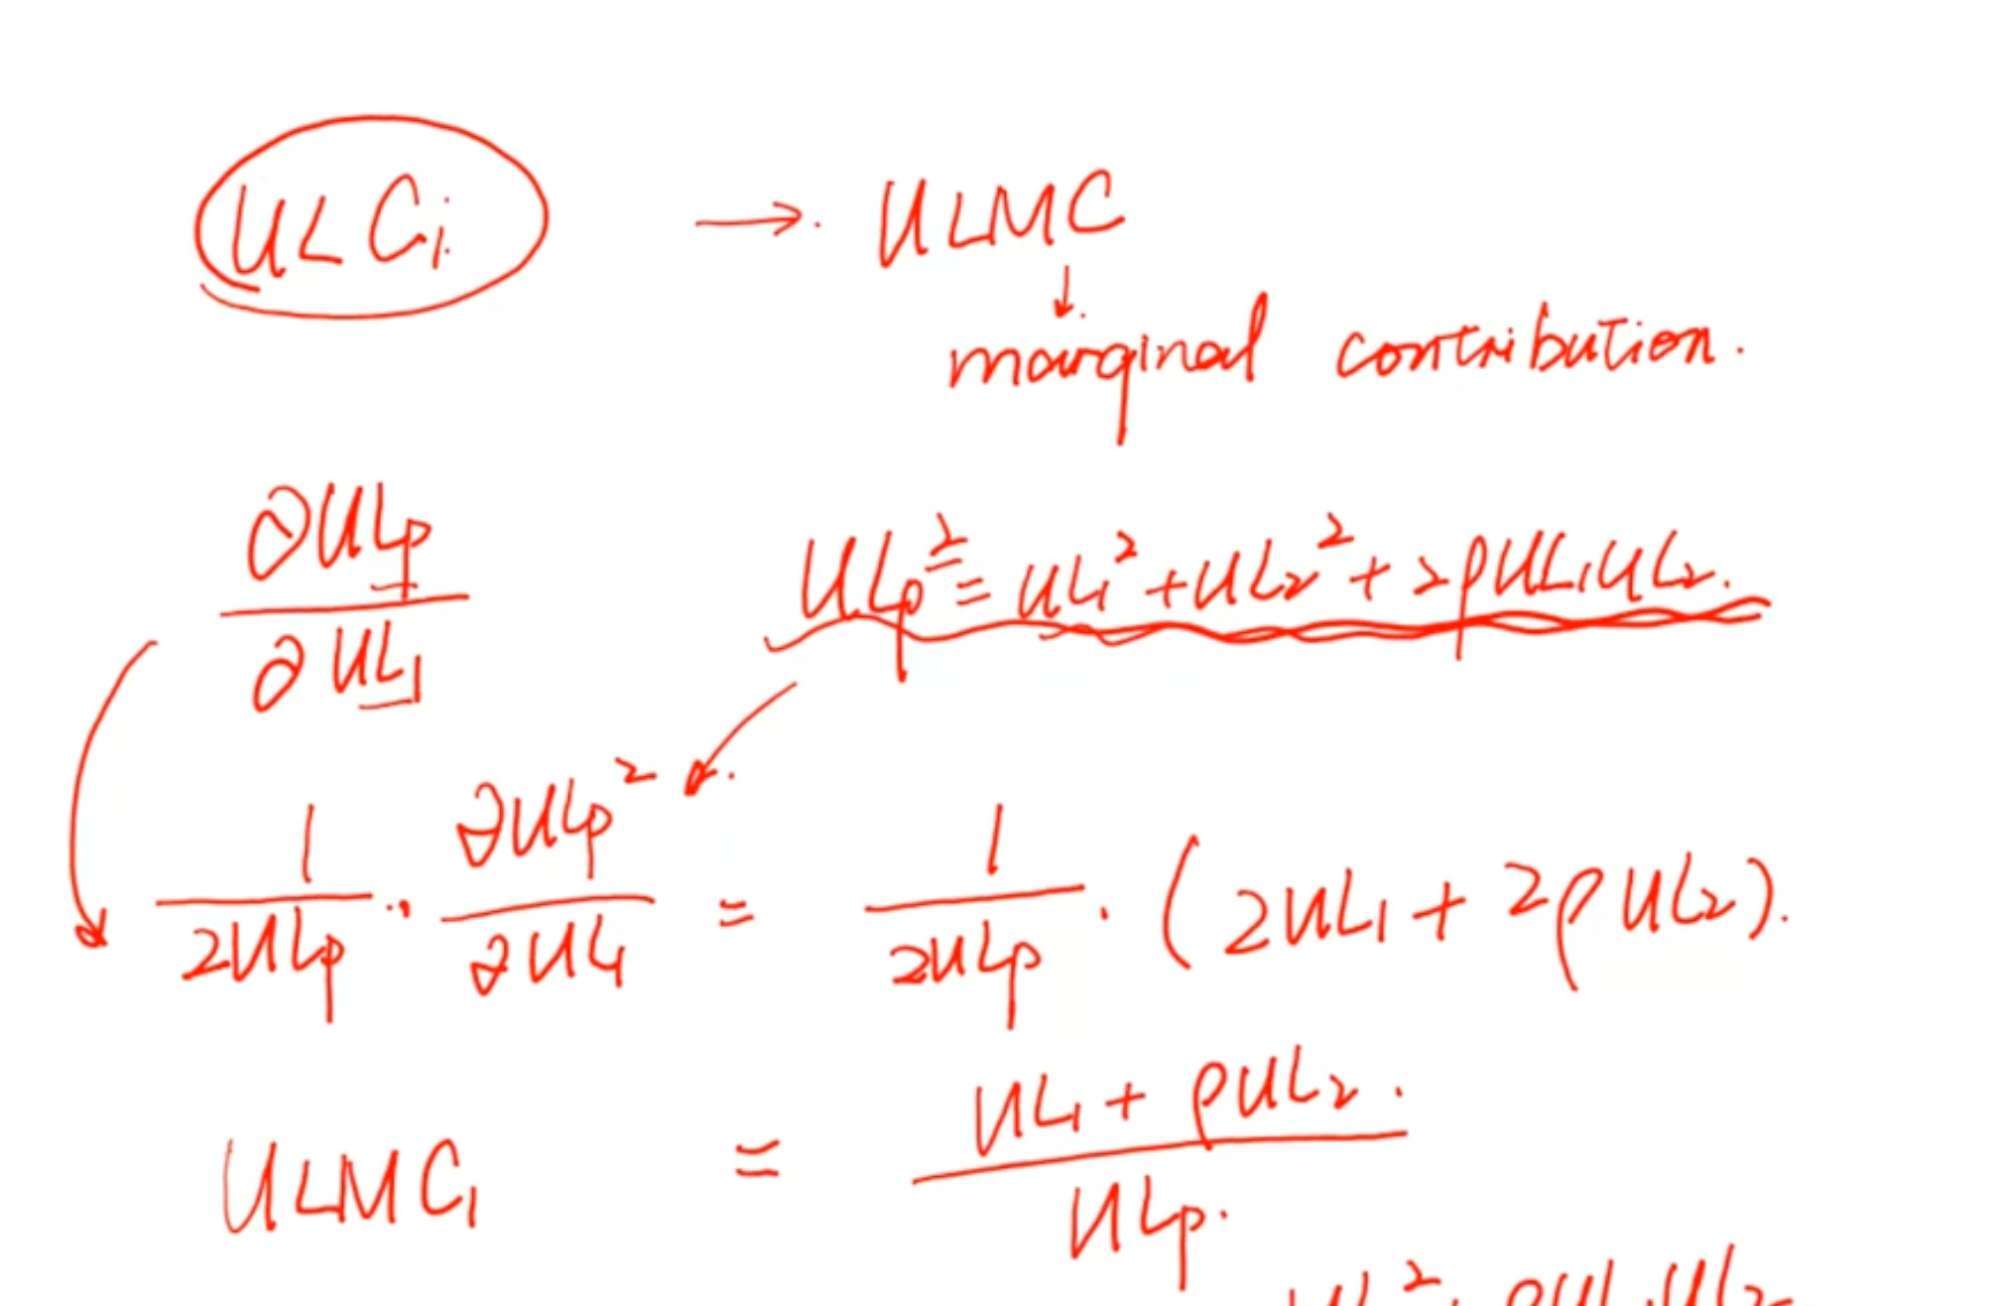 ULCi → ULMC
↓
marginal contribution.
∂ULp / ∂UL1
ULp² = UL1² + UL2² + 2ρUL1UL2.
1/2ULp · ∂ULp²/∂UL1 = 1/2ULp · (2UL1 + 2ρUL2).
ULMC1 = UL1 + ρUL2. / ULp.